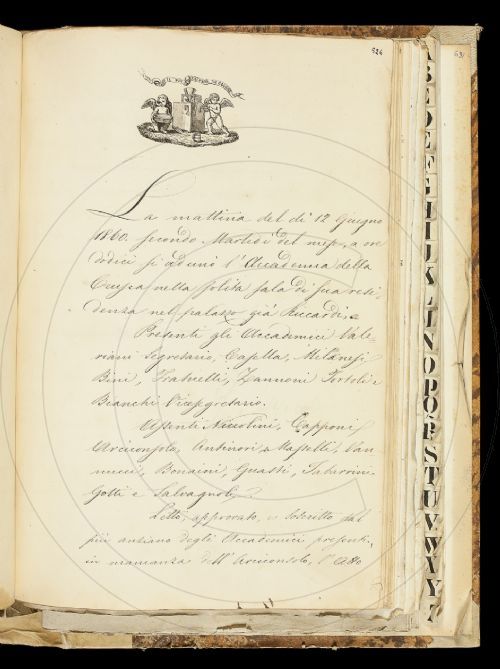 524
IL PIÙ BEL FIOR NE COGLIE
La mattina del dì 12 Giugno
1860. secondo Martedì del mese, a ore
dodici si adunò l'Accademia della
Crusca nella solita sala di sua resi-
denza nel palazzo già Riccardi.
Presenti gli Accademici Vale-
riani Segretario, Casella, Milanesi
Bini, Fraticelli, Zannoni Tortoli e
Bianchi Vicesegretario.
Assenti Niccolini, Capponi
Arciconsolo, Antinori, Mastelli, Van-
nucci, Bonaini, Guasti, Tabarrini
Gotti e Salvagnoli.
Letto, approvato, e soscritto dal
più anziano degli Accademici presenti,
in mancanza dell'Arciconsolo, l'Atto
631
B
C
D
E
F
G
H
I
J
K
L
N
O
P
Q
R
S
T
U
V
W
X
Y
Z